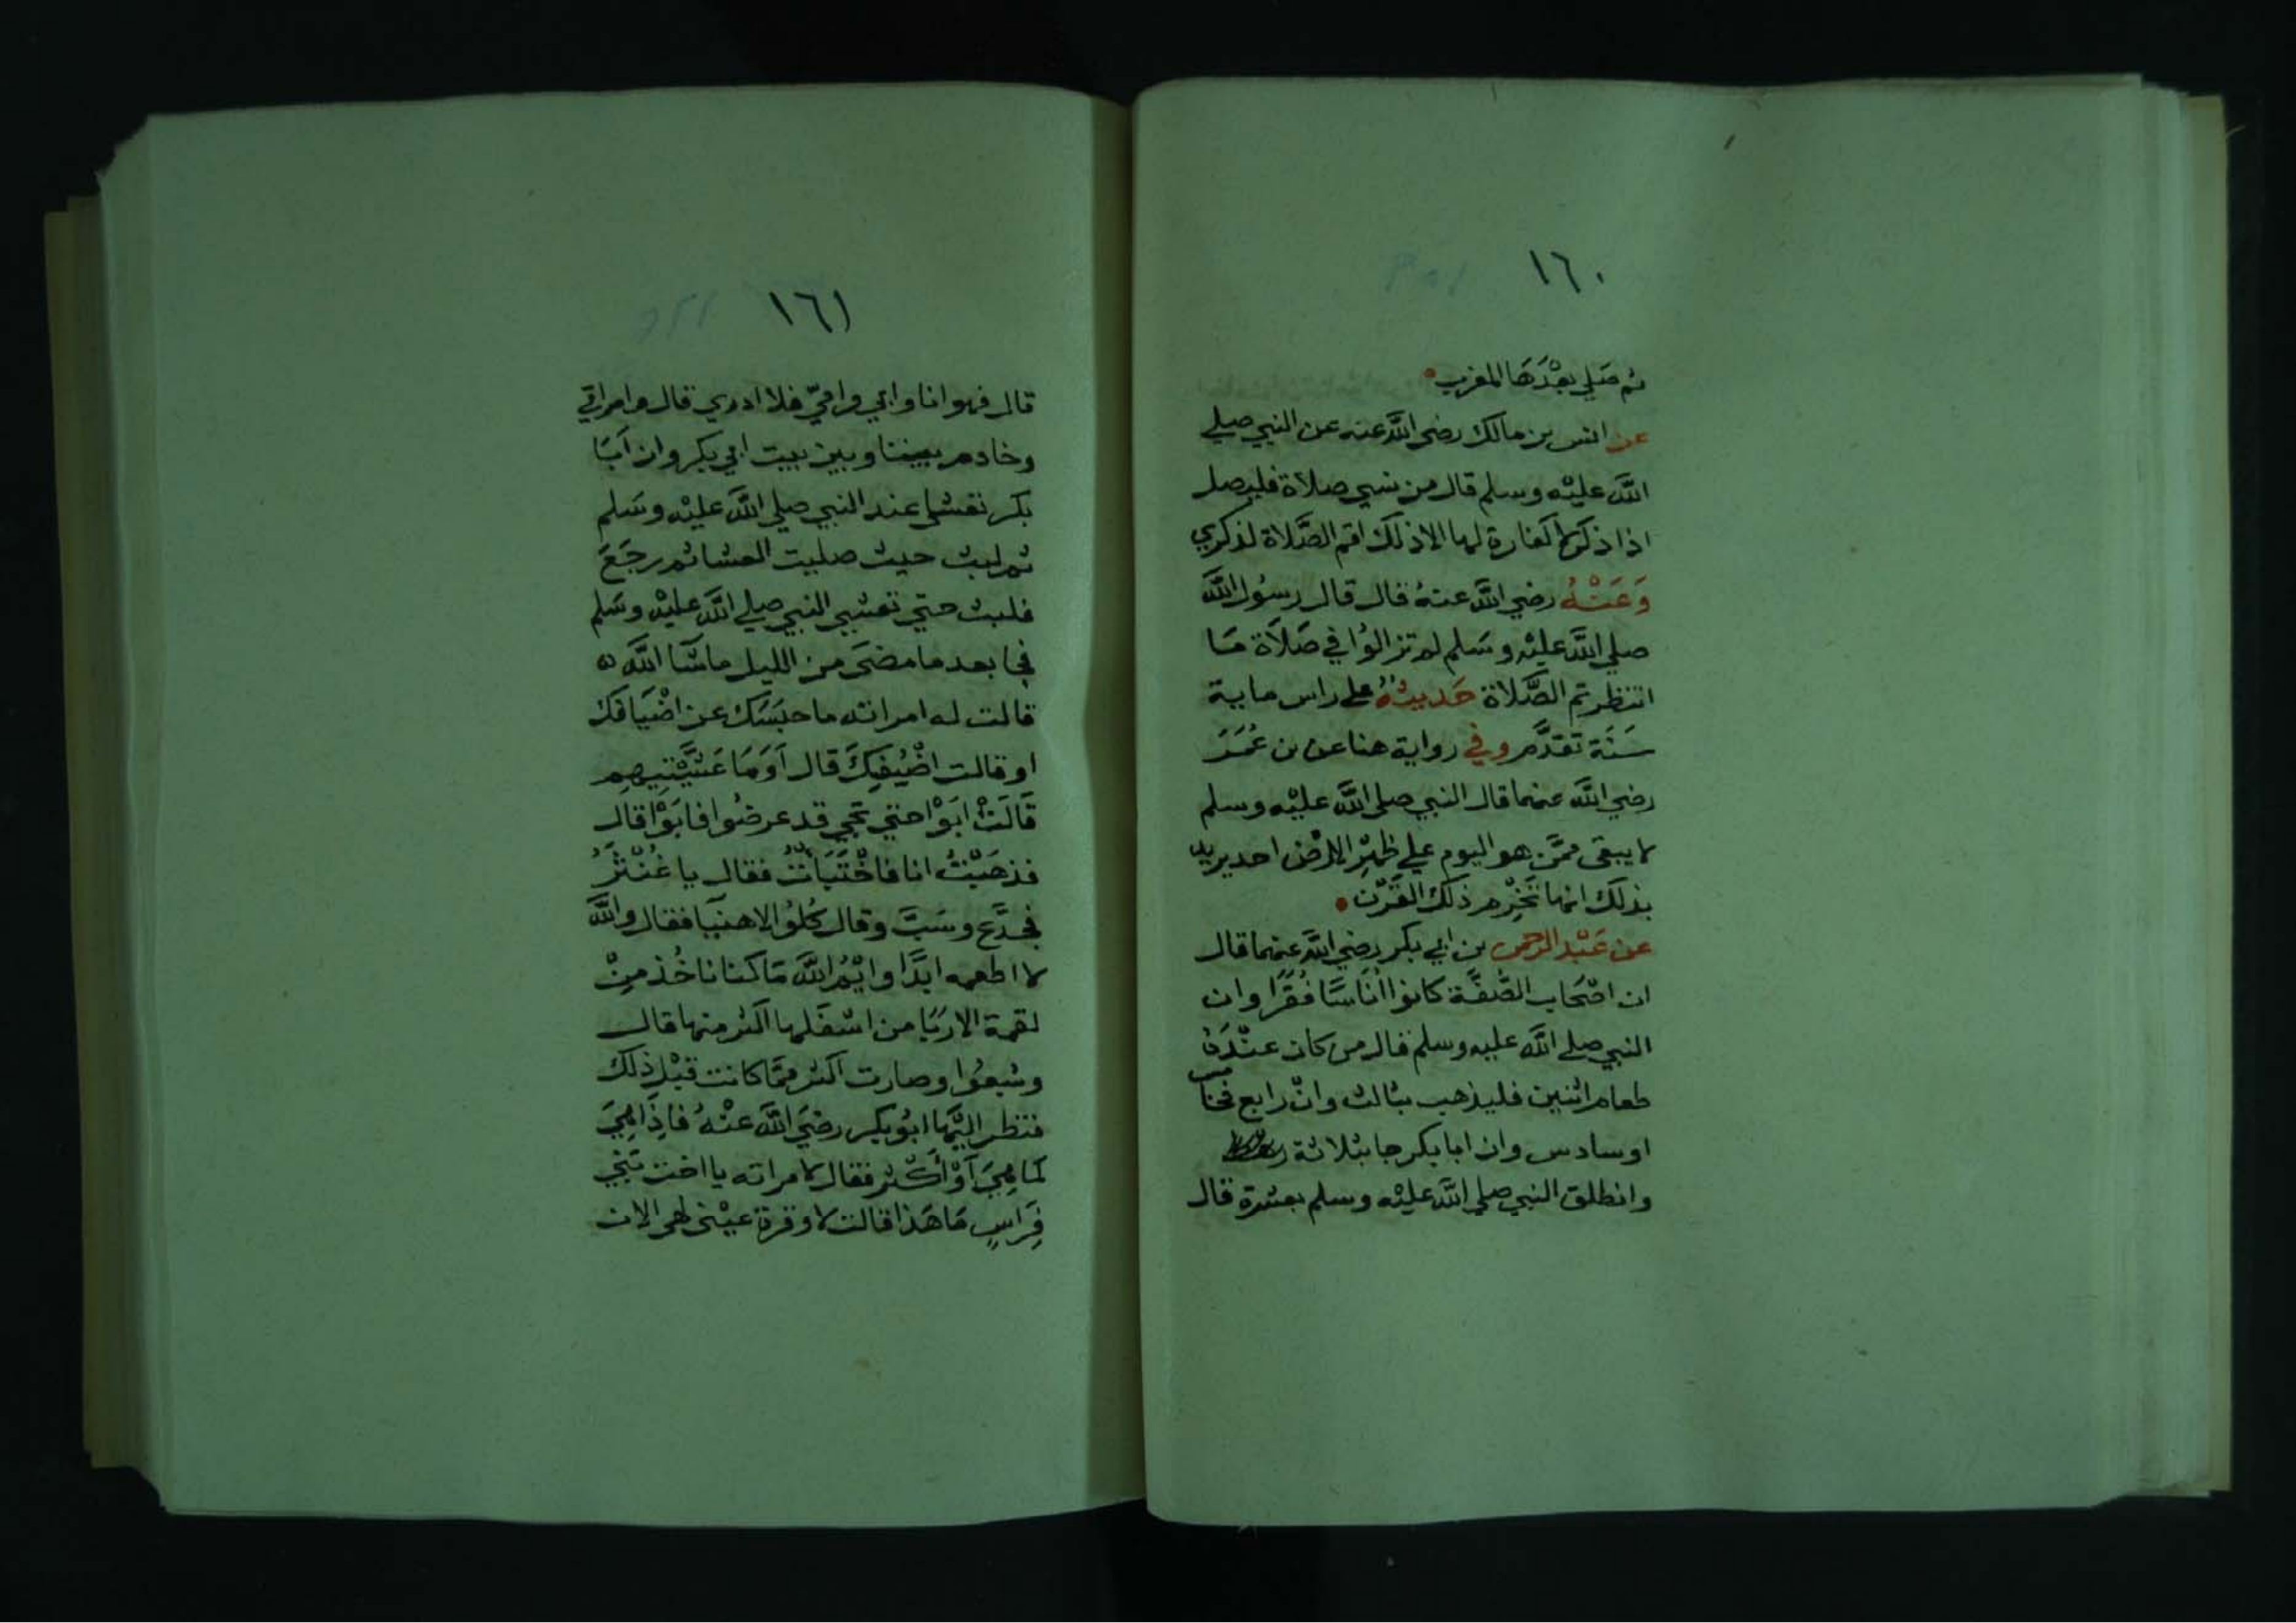 ١٦٠
ثم صَلي بعْدَهَا المغرب
عن انس بن مالك رضي اللَّه عنه عن النبي صلي
اللَّه عليْه وسلم قال من نسي صلاة فليصل
اذا ذكرها لا كفارة لها الا ذلك اقم الصَّلاة لذكري
وَعَنْهُ رضي اللَّه عنهُ قال قال رسُول اللَّه
صلي اللَّه عليْه وسَلم لم تزالوُا في صَلاَة مَا
انتظرتم الصَّلاة حَديثهُ علي راس ماية
سَنَة تقدَّم وفي رواية هنا عن بن عُمَرَ
رضي اللَّه عنهما قال النبي صلي اللَّه عليْه وسلم
لا يبقى ممَّن هو اليوم علي ظهْرِ الارْض احد يريد
بذلك انها تَخْرِم ذلك القَرْن
عن عَبْد الرحمن بن ابي بكر رضي اللَّه عنهما قال
ان اصْحَاب الصُّفَّة كانوا انَاسًا فُقرَا وان
النبي صلي اللَّه عليه وسلم قال من كان عنْدَهُ
طعام اثنين فليذهب بثالث وانْ رابع فخامس
او سادس وان ابا بكر جا بثلاثة
وانطلق النبي صلي اللَّه عليْه وسلم بعشرة قال
١٦١
قال فهو انا وابي واميّ فلا ادري قال وامراتي
وخادم بيننا وبين بيت ابي بكر وان اَبَا
بكر تعشي عند النبي صلي اللَّه عليْه وسَلم
ثم لبث حيث صليت العشا ثم رجَعَ
فلبث حتي تعشي النبي صلي اللَّه عليْه وسَلم
فجا بعد ما مضىَ من الليل ما شَا اللَّه
قالت له امراته ما حبَسَك عن اضْيَافك
او قالت اضْيفِكَ قال اَوَمَا عَشَّيْتيهم
قَالَتْ ابَوْا حتي تجي قد عرضُوا فابَوْا قال
فذهَبْتُ انا فاخْتَبَأتُ فقال يا غُنْثَرُ
فجدَّع وسَبَّ وقال كُلوُا لا هنيَا فقال واللَّه
لا اطعمه ابدًا وايْمُ اللَّه مَا كنا ناخُذ مِنْ
لقمة الا ربَا من اسْفَلها اكثر منها قال
وشبعوُا وصارت اكثر ممَّا كانت قبْل ذلك
فنظر اليْهَا ابوُ بكر رضيَ اللَّه عنْهُ فاِذَا هِيَ
كما هِيَ اَوْ أكْثر فقال لامراته يا اخت بَني
فِرَاسٍ مَا هَذا قالت لا وقرة عيْني لهي الان